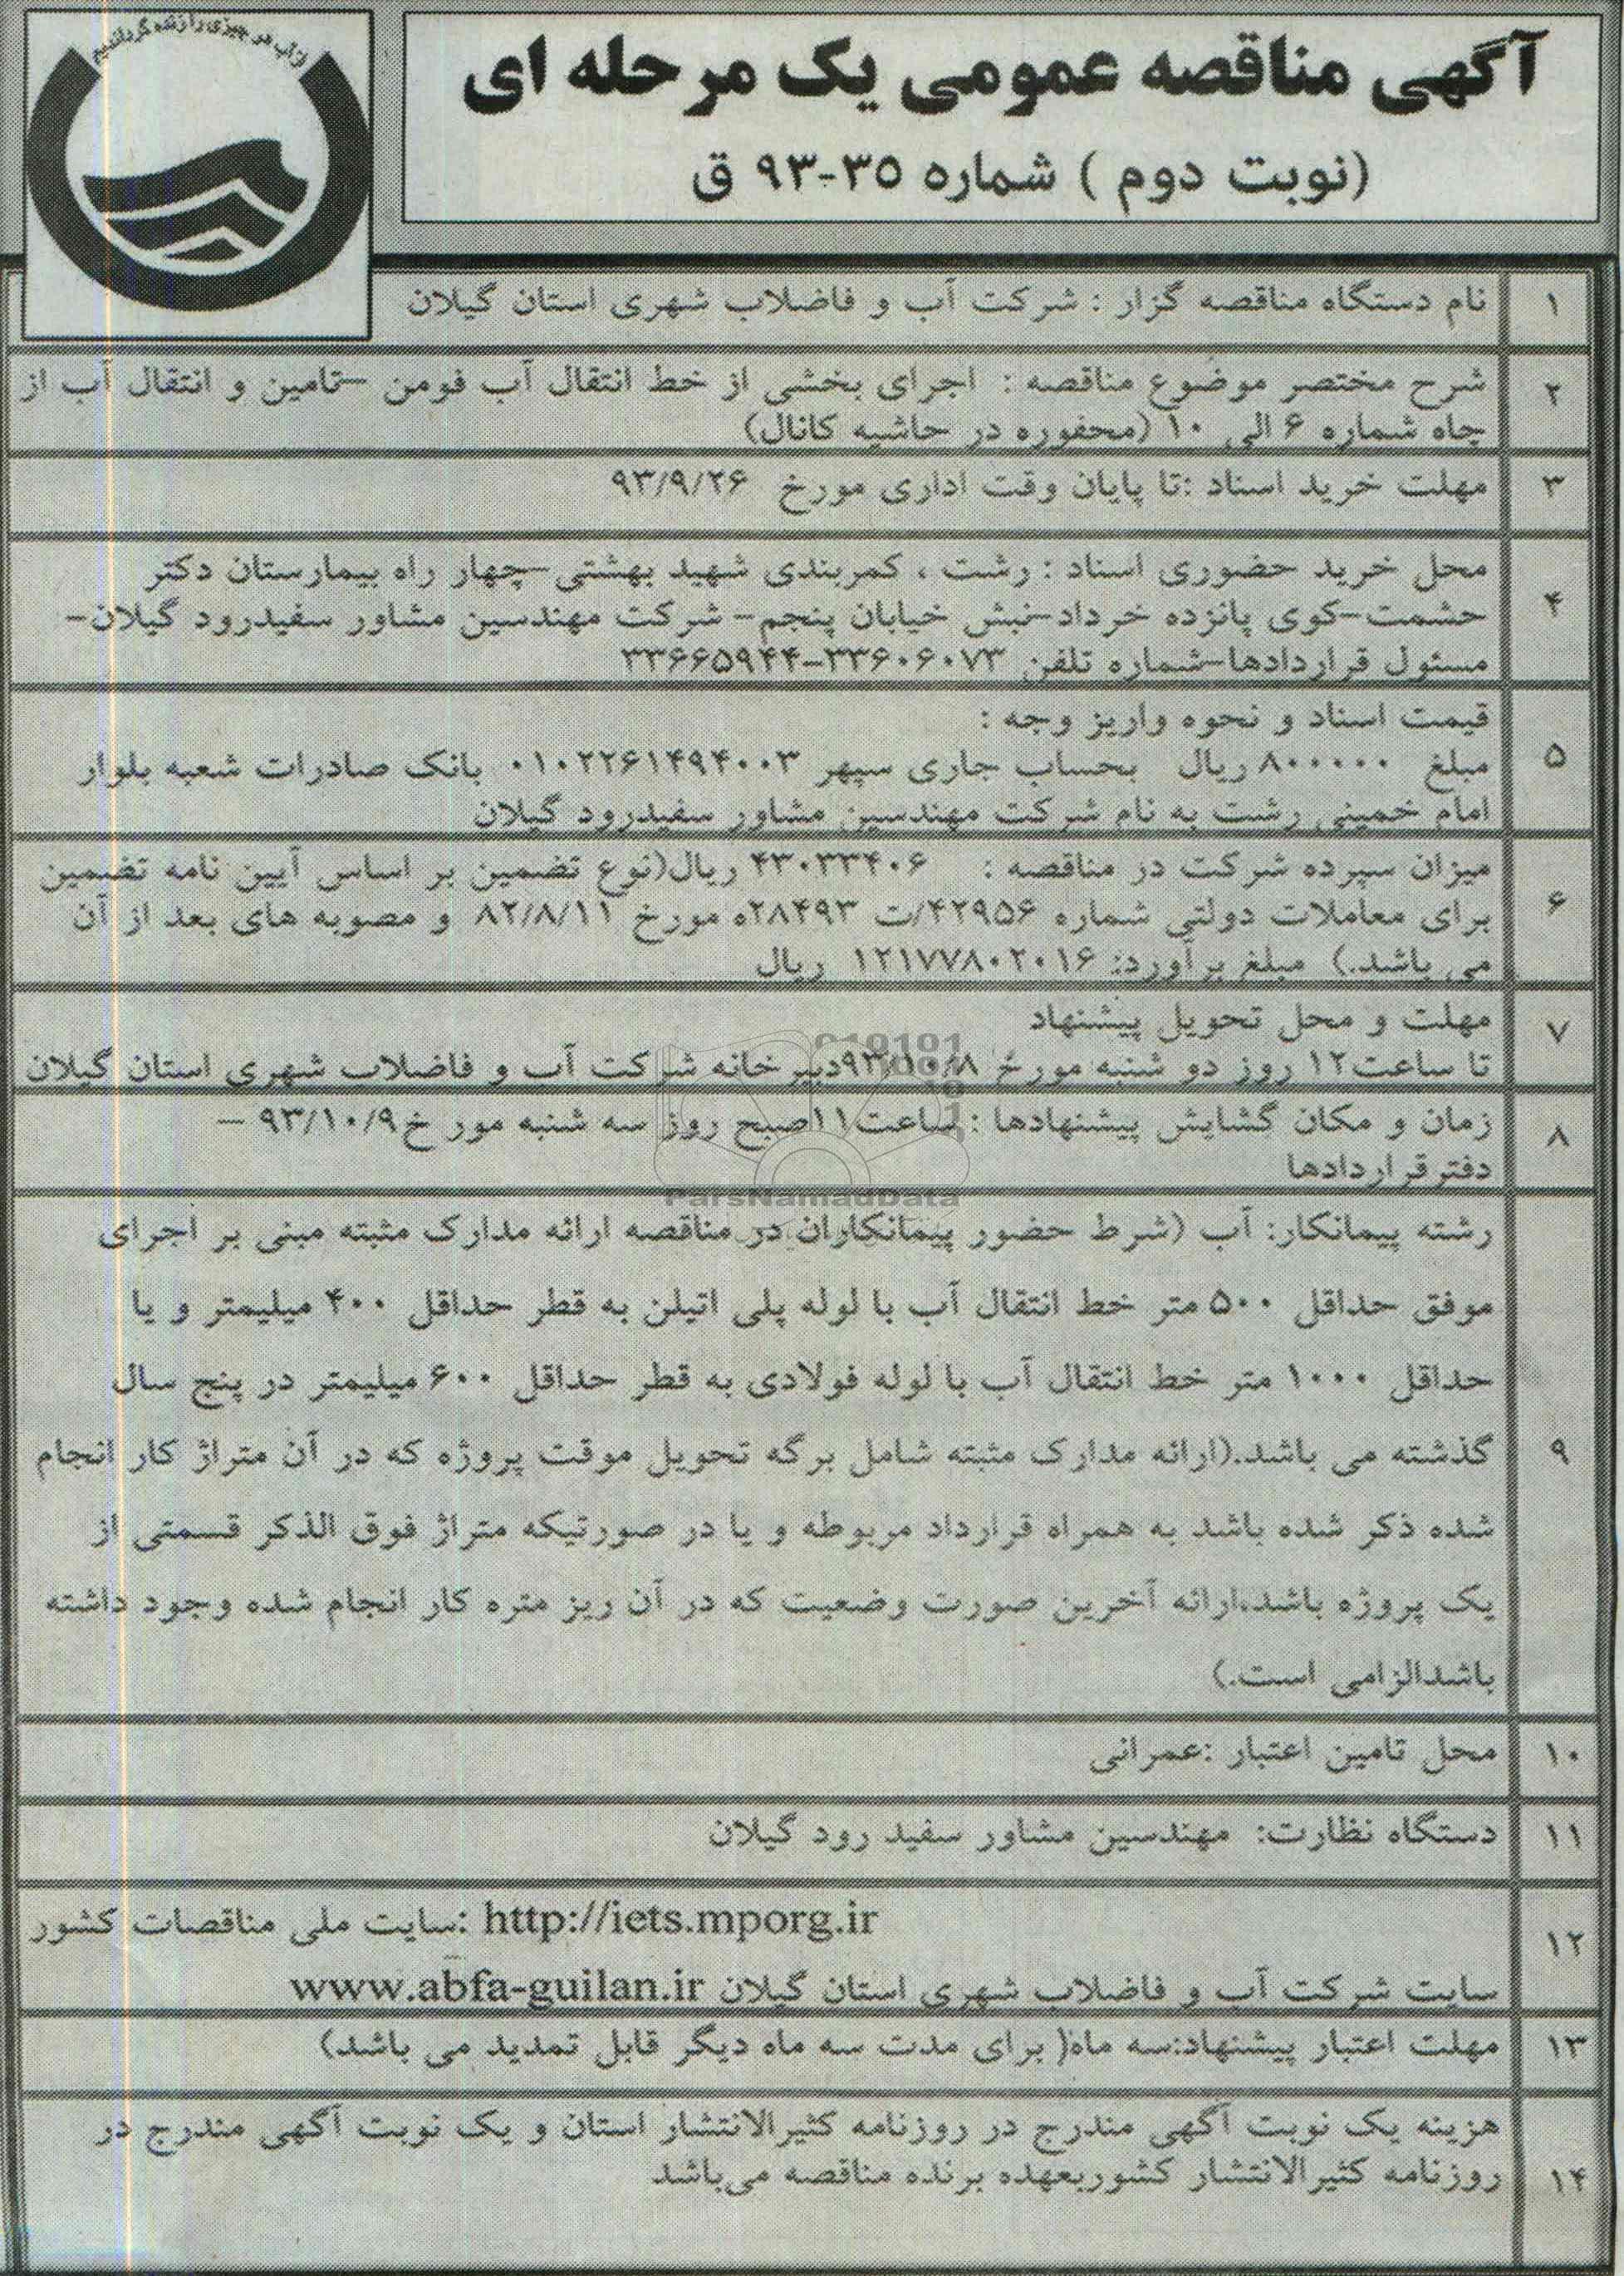 از آب هر چیزی را زنده گردانیدیم
آگهی مناقصه عمومی یک مرحله ای
(نوبت دوم ) شماره ۳۵-۹۳ ق
۱ نام دستگاه مناقصه گزار : شرکت آب و فاضلاب شهری استان گیلان
۲ شرح مختصر موضوع مناقصه : اجرای بخشی از خط انتقال آب فومن –تامین و انتقال آب از
چاه شماره ۶ الی ۱۰ (محفوره در حاشیه کانال)
۳ مهلت خرید اسناد :تا پایان وقت اداری مورخ ۹۳/۹/۲۶
محل خرید حضوری اسناد : رشت ، کمربندی شهید بهشتی–چهار راه بیمارستان دکتر
۴ حشمت–کوی پانزده خرداد–نبش خیابان پنجم– شرکت مهندسین مشاور سفیدرود گیلان–
مسئول قراردادها–شماره تلفن ۳۳۶۰۶۰۷۳-۳۳۶۶۵۹۴۴
قیمت اسناد و نحوه واریز وجه :
۵ مبلغ ۸۰۰۰۰۰ ریال بحساب جاری سپهر ۰۱۰۲۲۶۱۴۹۴۰۰۳ بانک صادرات شعبه بلوار
امام خمینی رشت به نام شرکت مهندسین مشاور سفیدرود گیلان
میزان سپرده شرکت در مناقصه : ۴۳۰۳۳۴۰۶ ریال(نوع تضمین بر اساس آیین نامه تضمین
۶ برای معاملات دولتی شماره ۴۲۹۵۶/ت ۲۸۴۹۳ه مورخ ۸۲/۸/۱۱ و مصوبه های بعد از آن
می باشد.) مبلغ برآورد: ۱۲۱۷۷۸۰۲۰۱۶ ریال
۷ مهلت و محل تحویل پیشنهاد
تا ساعت۱۲ روز دو شنبه مورخ ۹۳/۱۰/۸دبیرخانه شرکت آب و فاضلاب شهری استان گیلان
۸ زمان و مکان گشایش پیشنهادها : ساعت۱۱صبح روز سه شنبه مورخ۹۳/۱۰/۹ –
دفترقراردادها
ParsNamadData
رشته پیمانکار: آب (شرط حضور پیمانکاران در مناقصه ارائه مدارک مثبته مبنی بر اجرای
موفق حداقل ۵۰۰ متر خط انتقال آب با لوله پلی اتیلن به قطر حداقل ۴۰۰ میلیمتر و یا
حداقل ۱۰۰۰ متر خط انتقال آب با لوله فولادی به قطر حداقل ۶۰۰ میلیمتر در پنج سال
۹ گذشته می باشد.(ارائه مدارک مثبته شامل برگه تحویل موقت پروژه که در آن متراژ کار انجام
شده ذکر شده باشد به همراه قرارداد مربوطه و یا در صورتیکه متراژ فوق الذکر قسمتی از
یک پروژه باشد،ارائه آخرین صورت وضعیت که در آن ریز متره کار انجام شده وجود داشته
باشدالزامی است.)
۱۰ محل تامین اعتبار :عمرانی
۱۱ دستگاه نظارت: مهندسین مشاور سفید رود گیلان
۱۲ http://iets.mporg.ir :سایت ملی مناقصات کشور
سایت شرکت آب و فاضلاب شهری استان گیلان www.abfa-guilan.ir
۱۳ مهلت اعتبار پیشنهاد:سه ماه( برای مدت سه ماه دیگر قابل تمدید می باشد)
هزینه یک نوبت آگهی مندرج در روزنامه کثیرالانتشار استان و یک نوبت آگهی مندرج در
۱۴ روزنامه کثیرالانتشار کشوربعهده برنده مناقصه می‌باشد